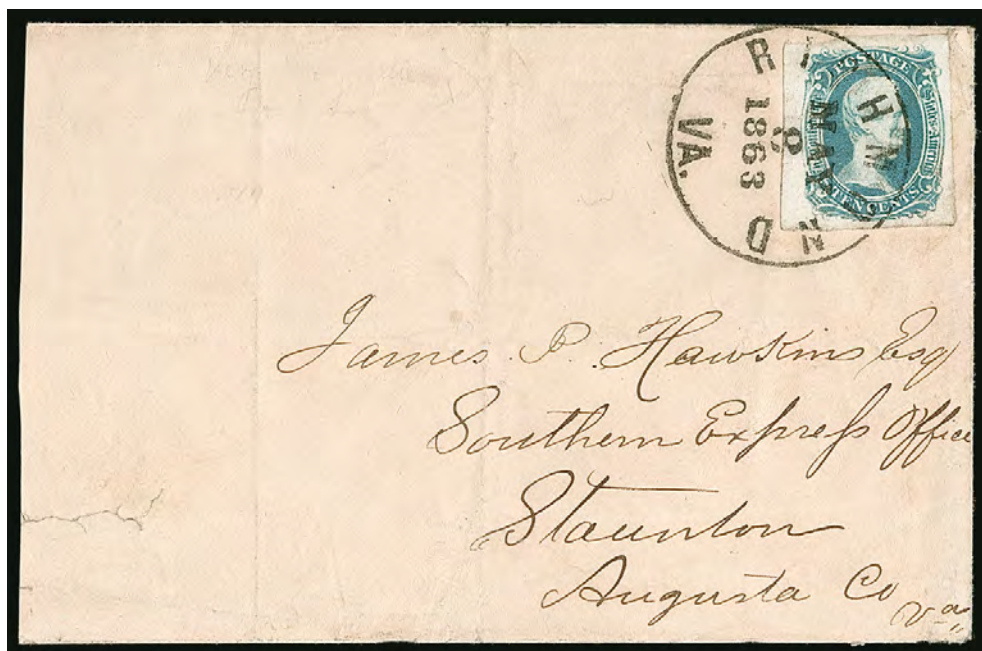 RICHMOND
MAY
8
1863
VA.
POSTAGE
TEN CENTS
James P. Hawkins Esq
Southern Express Office
Staunton
Augusta Co
Va,,